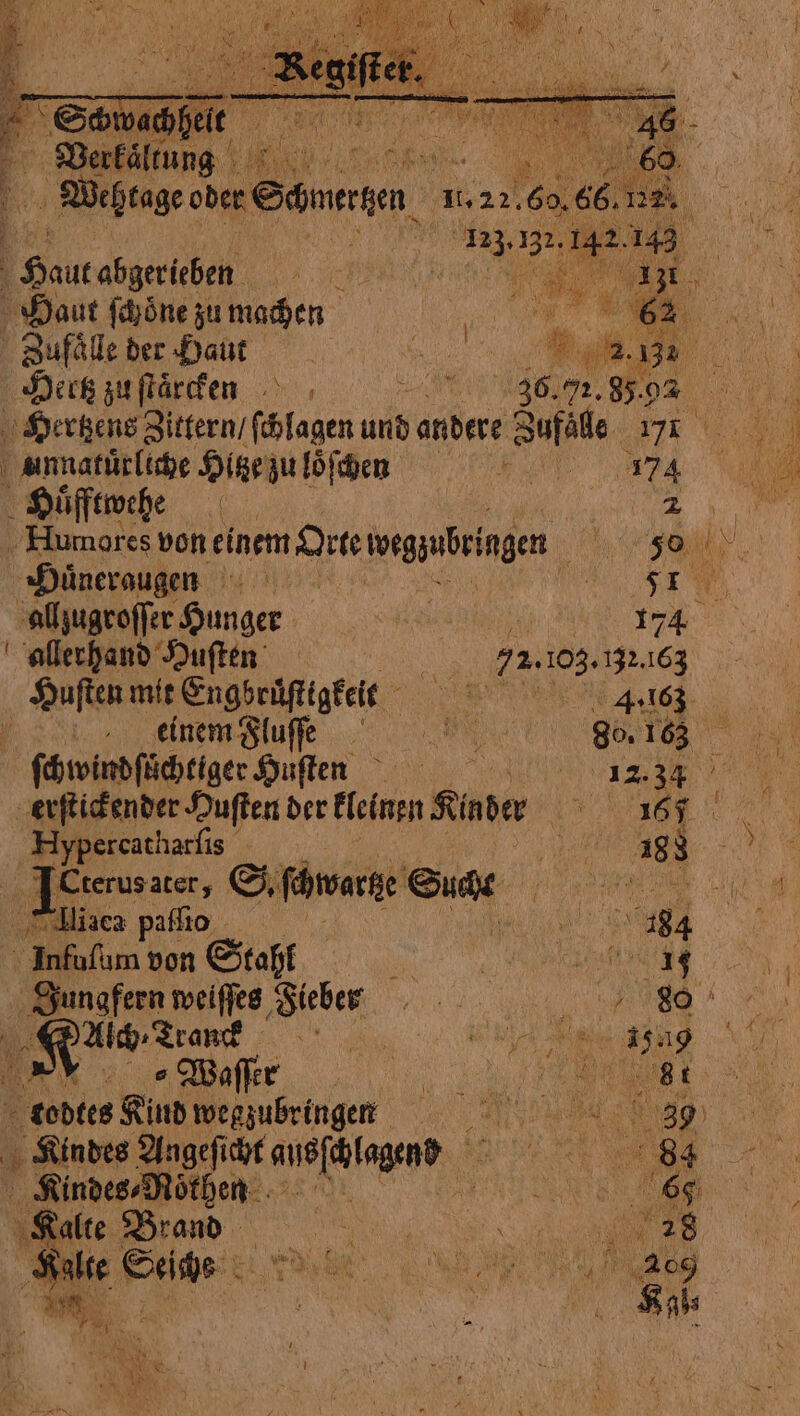 Regiſter.
Schwachheit 46
Verkaͤltung 60
Wehtage oder Schmertzen 11.22.60.66.122.
123.132.142.143
Haut abgerieben 131
Haut ſchoͤne zu machen 62
Zufaͤlle der Haut 2.132
Hertz zu ſtaͤrcken 36.72.85.92
Hertzens Zittern/ ſchlagen und andere Zufaͤlle 171
unnatuͤrliche Hitze zu loͤſchen 174
Huͤfftwehe 2
Humores von einem Orte wegzubringen 50
Huͤneraugen 51
allzugroſſer Hunger 174
allerhand Huſten 72.103.132.163
Huſten mit Engbruͤſtigkeit 4.163
einem Fluſſe 80.163
ſchwindſuͤchtiger Huſten 12.34
erſtickender Huſten der kleinen Kinder 165
Hypercatharſis 183
ICterus ater, S. ſchwartze Sucht
Iliaca paſſio 184
Infuſum von Stahl 15
Jungfern weiſſes Fieber 80
KAlch-Tranck 15.19
- Waſſer 81
todtes Kind wegzubringen 39
Kindes Angeſicht ausſchlagend 84
Kindes-Noͤthen 65
Kalte Brand 28
Kalte Seiche 209
Kal-